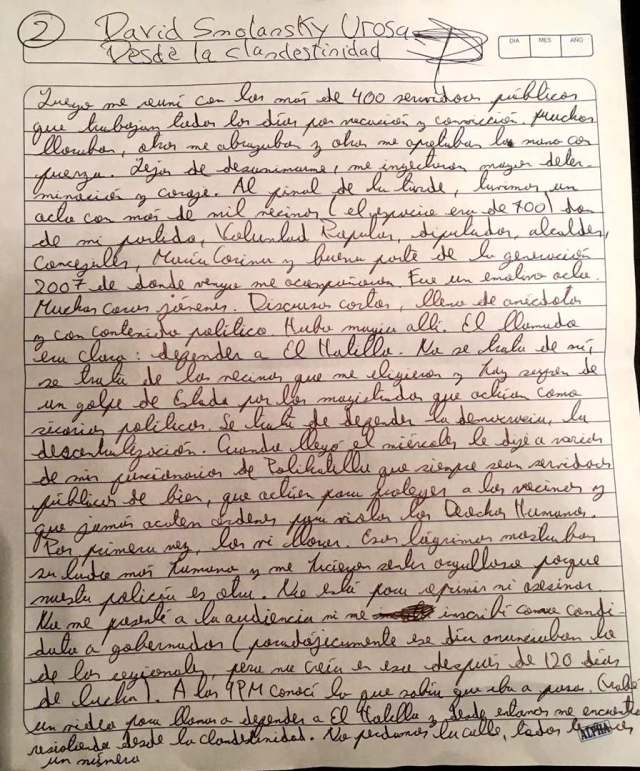 2
David Smolansky Urosa
Desde la clandestinidad
DIA MES AÑO
Luego me reuní con los más de 400 servidores públicos
que trabajan todos los días por vocación y convicción. Muchos
lloraban, otros me abrazaban y otros me apretaban la mano con
fuerza. Lejos de desanimarme, me inyectaron mayor deter-
minación y coraje. Al final de la tarde, tuvimos un
acto con más de mil vecinos (el espacio era de 700) don-
de mi partido, Voluntad Popular, diputados, alcaldes,
concejales, María Corina y buena parte de la generación
2007 de donde vengo me acompañaron. Fue un emotivo acto.
Muchas caras jóvenes. Discursos cortos, lleno de anécdotas
y con contenido político. Hubo magia allí. El llamado
era claro: defender a El Hatillo. No se trata de mí,
se trata de los vecinos que me eligieron y hoy sufren de
un golpe de Estado por los magistrados que actúan como
sicarios políticos. Se trata de defender la democracia, la
descentralización. Cuando llegó el miércoles le dije a varios
de mis funcionarios de Polihatillo que siempre sean servidores
públicos de bien, que actúen para proteger a los vecinos y
que jamás acaten órdenes para violar los Derechos Humanos.
Por primera vez, los vi llorar. Esas lágrimas mostraban
su lado más humano y me hicieron sentir orgulloso porque
nuestra policía es otra. No está para reprimir ni asesinar.
No me presenté a la audiencia ni me inscribí como candi-
dato a gobernador (paradójicamente ese día anunciaban lo
de las regionales, pero no creía en eso después de 120 días
de lucha). A las 9PM conocí lo que sabía que iba a pasar. Grabé
un video para llamar a defender a El Hatillo y desde entonces me encuentro
resistiendo desde la clandestinidad. No perdamos la calle, todos
un número
ALPHA